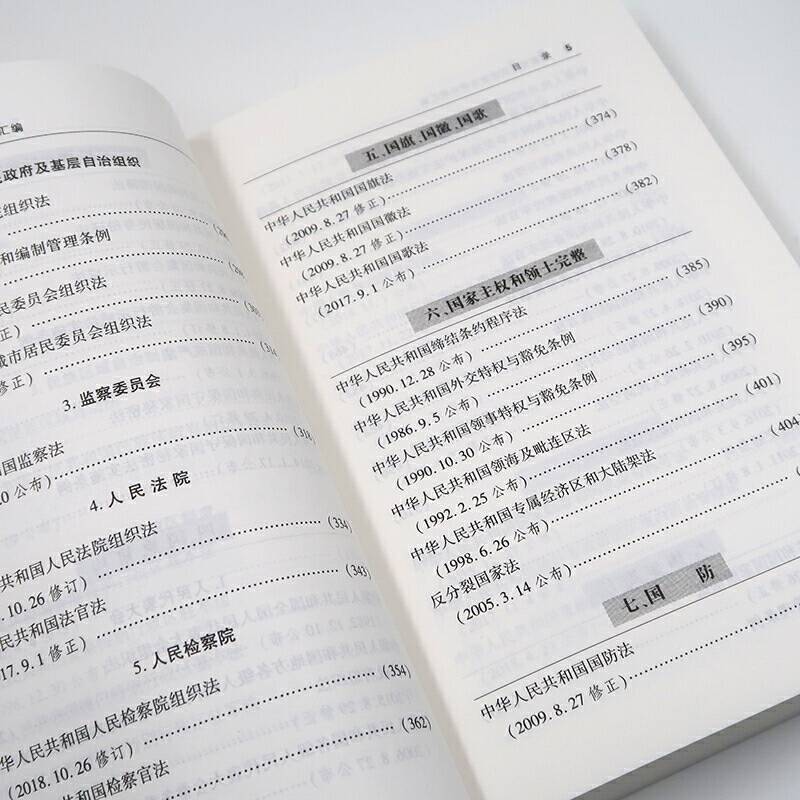 汇编
政府及基层自治组织
组织法
和编制管理条例
民委员会组织法
修正）
城市居民委员会组织法
修正）
3. 监察委员会
国监察法 (318
0 公布）
4. 人民法院
共和国人民法院组织法 (334)
.10.26 修订）
民共和国法官法 (343)
17.9.1 修正）
5. 人民检察院
华人民共和国人民检察院组织法 (354)
(2018.10.26 修订）
共和国检察官法 (362)
目 录 5
五、国旗、国徽、国歌
中华人民共和国国旗法 (374)
(2009.8.27 修正）
中华人民共和国国徽法 (378)
(2009.8.27 修正）
中华人民共和国国歌法 (382)
(2017.9.1 公布）
六、国家主权和领土完整
中华人民共和国缔结条约程序法 (385)
(1990.12.28 公布）
中华人民共和国外交特权与豁免条例 (390)
(1986.9.5 公布）
中华人民共和国领事特权与豁免条例 (395)
(1990.10.30 公布）
中华人民共和国领海及毗连区法 (401)
(1992.2.25 公布）
中华人民共和国专属经济区和大陆架法 (404
(1998.6.26 公布）
反分裂国家法
(2005.3.14 公布）
七、国 防
中华人民共和国国防法
(2009.8.27 修正）